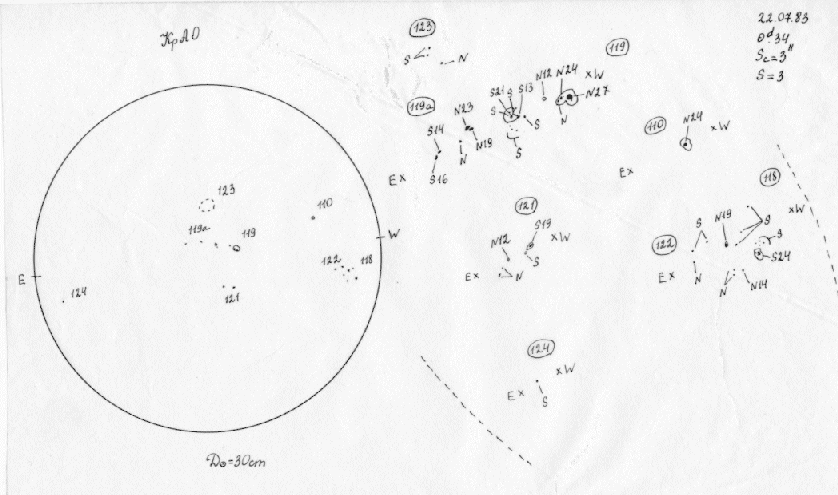 КрАО
22.07.83
0ᵈ34
Sc=3"
S=3
123
S
N
119
S21
S
S13
N12
N24
xW
N27
S
S
S
N
119a
N23
S14
N
N19
Ex
S16
110
N24
xW
Ex
118
xW
S
N19
S
S
S24
122
Ex
N
N
N14
121
S19
xW
N12
S
Ex
N
124
xW
Ex
S
123
110
119a
119
W
122
118
E
124
121
D₀=30cm